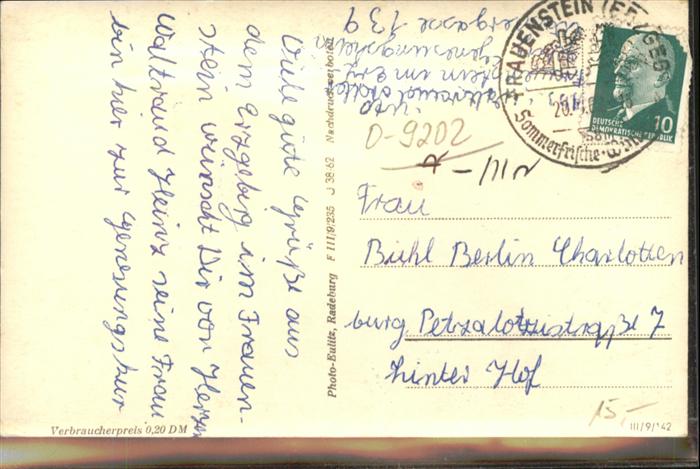 Viele gute Grüße aus
dem Erzgebirg im Frauen-
stein wünscht Dir von Herzen
Waltraud Heinz seine Frau
bin hier zur Genesungskur
Verbraucherpreis 0,20 DM
Photo-Eulitz, Radeburg F III/9/235 J 38-62 Nachdruck verboten
139
D-9202
FRAUENSTEIN (ERZGEB)
20.
Sommerfrische
DEUTSCHE
DEMOKRATISCHE REPUBLIK
10
Frau
Bühl Berlin Charlotten
burg Petzalotzistraße 7
hinter Hof
15,-
III/9/142